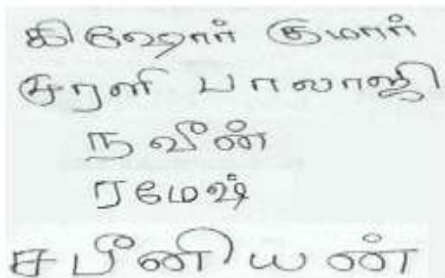 கிஷோர் குமார்
சுரளி பாலாஜி
நவீண்
ரமேஷ்
சபீனியண்